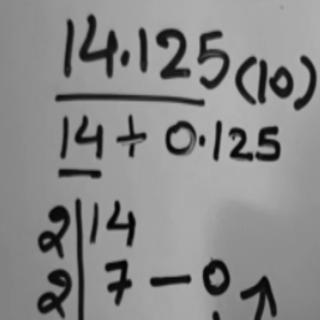 14.125(10)
14 + 0.125
2|14
2|7 — 0 ↑